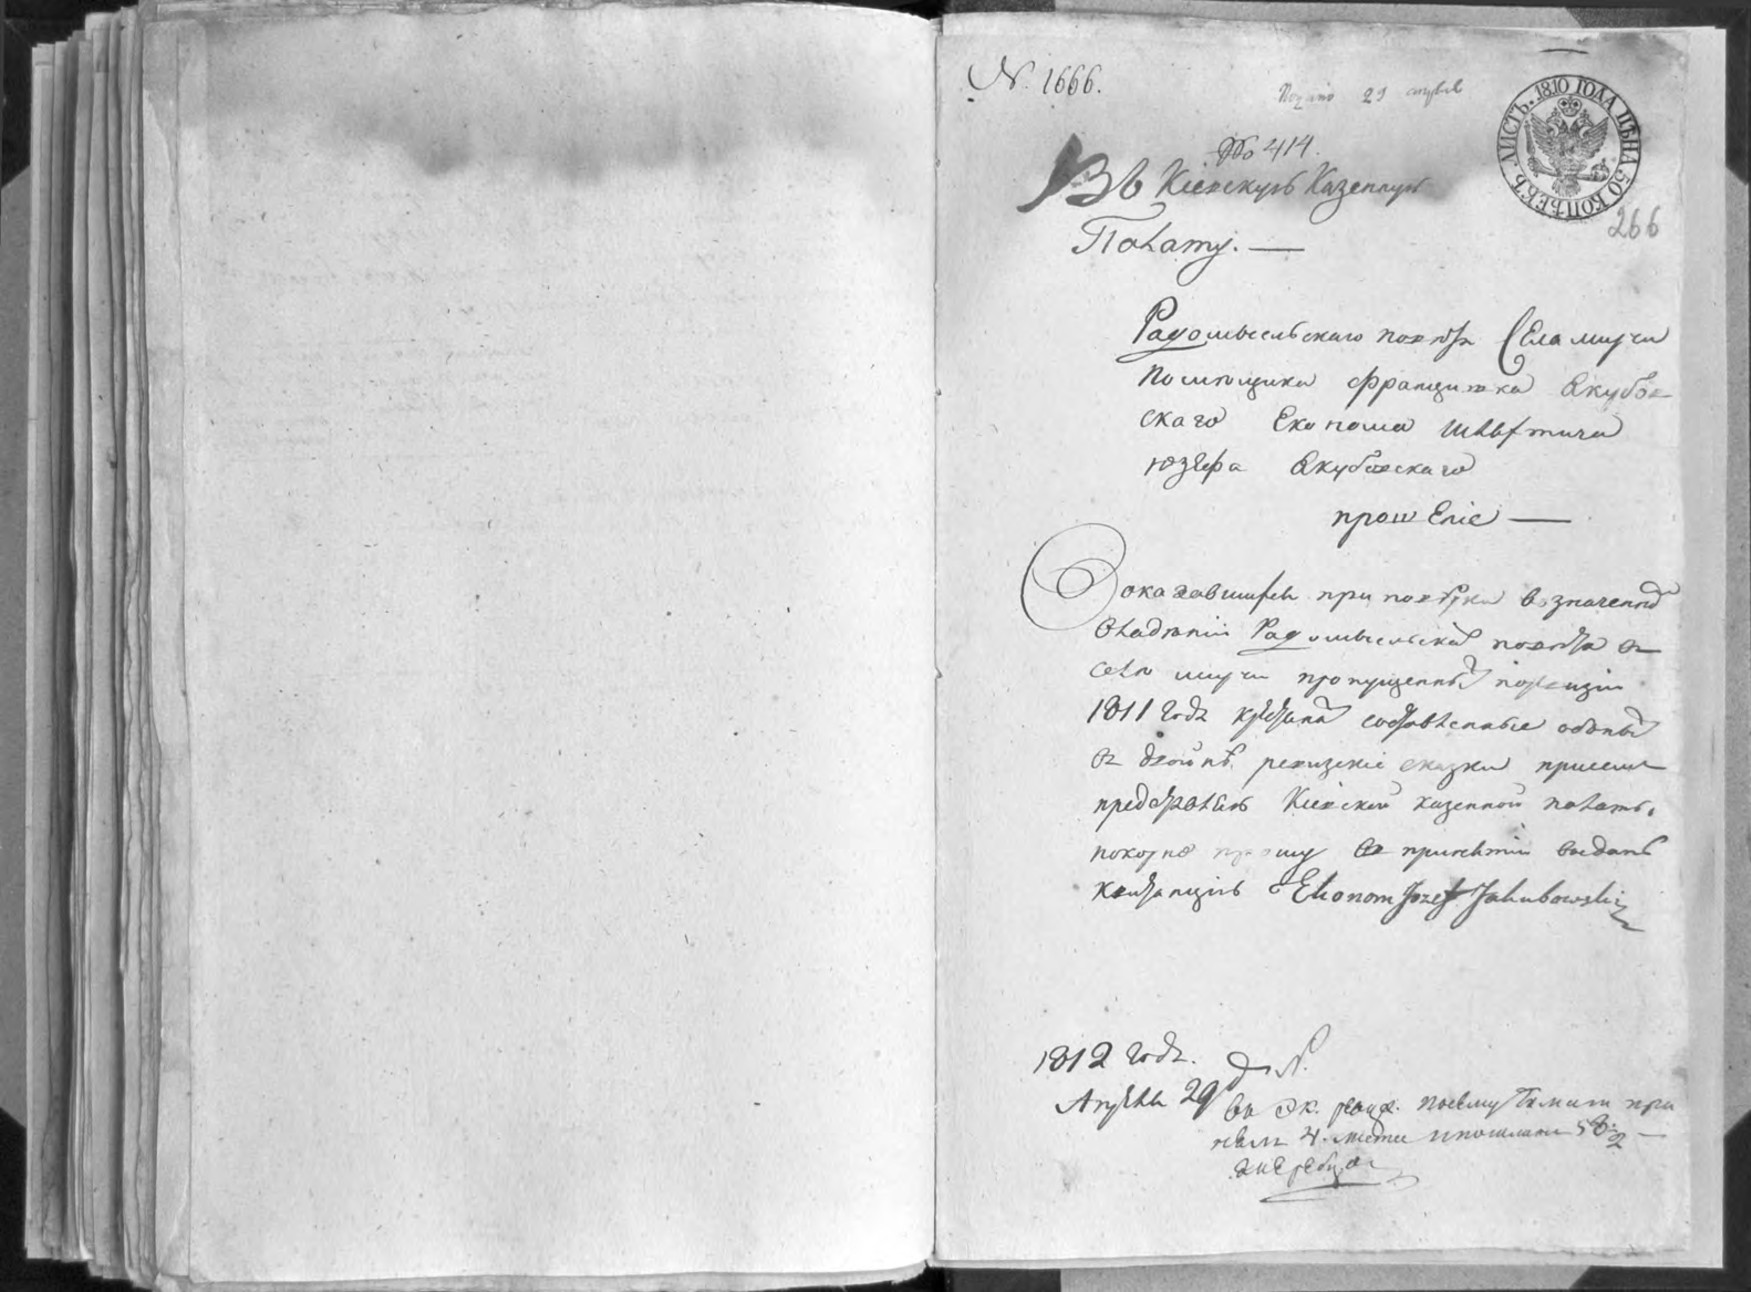 № 1666.
Подано 29 апреля
ЛИСТЪ. 1810 ГОДА ЦѢНА 50 КОПѢЕКЪ
№ 414.
266
Въ Кіевскую Казенную
Палату.—
Радомысельскаго повѣта Села мигчи
помѣщика Францишка Якубов-
скаго Економа шляхтича
юзефа Якубовскаго
прошеніе —
Оказавшихся при повѣрки в означенном
владѣніи Радомысельскаго повѣта в
селѣ пропущенных по ревизіи
1811 годъ крестьян составленные об оных
в двойнѣ ревизскіе сказки при сем
представляя Кіевской казенной палатѣ.
покорнѣ прошу в принятіи выдать
квитанцію Ekonom Jozef Jakubowski
1812 годъ.
Апреля 29 д
поелику при
няли 4. листы